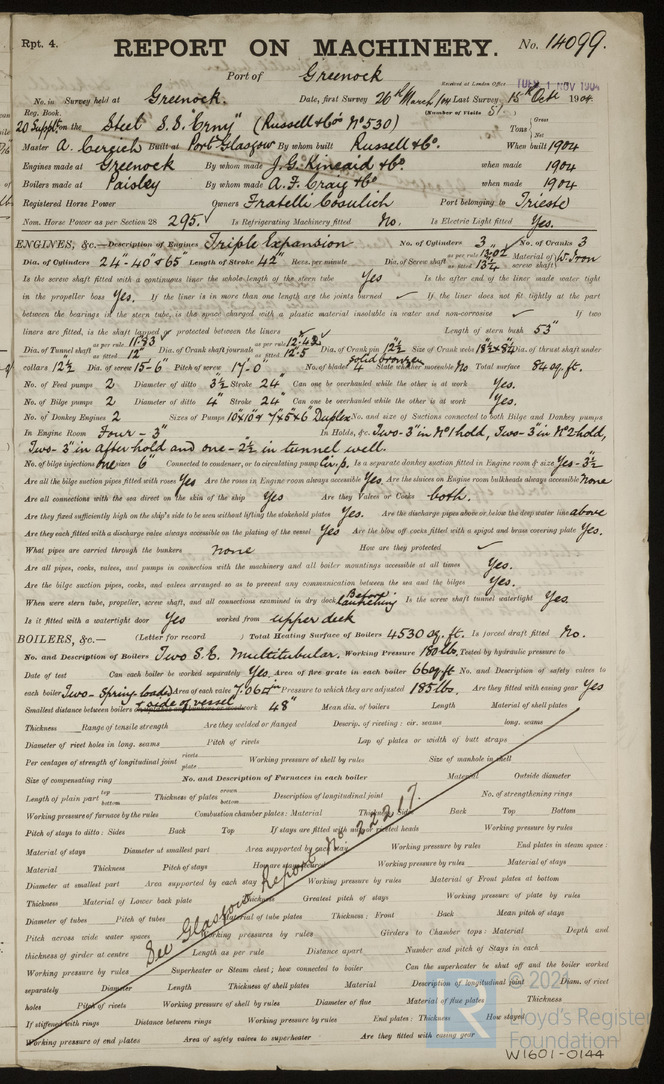 Rpt. 4.
REPORT ON MACHINERY.
No. 14099.
Port of Greenock
Received at London Office TUES. 1 NOV 1904
No. in Survey held at Greenock. Date, first Survey 26th March/04 Last Survey 15th Octr 1904
Reg. Book. (Number of Visits 51
20 Suppt. on the Steel S.S. "Erny" (Russell & Co No 530) Tons Gross Net
Master A. Cergich Built at Port Glasgow By whom built Russell & Co. When built 1904
Engines made at Greenock By whom made J. G. Kincaid & Co. when made 1904
Boilers made at Paisley By whom made A. F. Craig & Co. when made 1904
Registered Horse Power Owners Fratelli Cosulich Port belonging to Trieste
Nom. Horse Power as per Section 28 295. Is Refrigerating Machinery fitted No. Is Electric Light fitted Yes.
ENGINES, &c.— Description of Engines Triple Expansion No. of Cylinders 3 No. of Cranks 3
Dia. of Cylinders 24"-40" & 65" Length of Stroke 42" Revs. per minute Dia. of Screw shaft as per rule 13.02 as fitted 13¼ Material of screw shaft Iron
Is the screw shaft fitted with a continuous liner the whole length of the stern tube Yes Is the after end of the liner made water tight
in the propeller boss Yes. If the liner is in more than one length are the joints burned ✓ If the liner does not fit tightly at the part
between the bearings in the stern tube, is the space charged with a plastic material insoluble in water and non-corrosive ✓ If two
liners are fitted, is the shaft lapped or protected between the liners ✓ Length of stern bush 53"
Dia. of Tunnel shaft as per rule 11.83 as fitted 12" Dia. of Crank shaft journals as per rule 12.42 as fitted 12.5 Dia. of Crank pin 12½ Size of Crank webs Dia. of thrust shaft under
collars 12½ Dia. of screw 15-6" Pitch of screw 17-0 No. of blades 4 State whether moveable No Total surface 84 sq. ft.
solid bronze
No. of Feed pumps 2 Diameter of ditto 3½ Stroke 24" Can one be overhauled while the other is at work Yes.
No. of Bilge pumps 2 Diameter of ditto 4" Stroke 24" Can one be overhauled while the other is at work Yes.
No. of Donkey Engines 2 Sizes of Pumps Duplex No. and size of Suctions connected to both Bilge and Donkey pumps
In Engine Room Four - 3" In Holds, &c. Two-3" in No 1 hold, Two-3" in No 2 hold,
Two-3" in after hold and one-2½ in tunnel well.
No. of bilge injections one sizes 6" Connected to condenser, or to circulating pump Cir. p. Is a separate donkey suction fitted in Engine room & size Yes-3½
Are all the bilge suction pipes fitted with roses Yes Are the roses in Engine room always accessible Yes Are the sluices on Engine room bulkheads always accessible None
Are all connections with the sea direct on the skin of the ship Yes Are they Valves or Cocks both.
Are they fixed sufficiently high on the ship's side to be seen without lifting the stokehold plates Yes. Are the discharge pipes above or below the deep water line above
Are they each fitted with a discharge valve always accessible on the plating of the vessel Yes Are the blow off cocks fitted with a spigot and brass covering plate Yes.
What pipes are carried through the bunkers None How are they protected ✓
Are all pipes, cocks, valves, and pumps in connection with the machinery and all boiler mountings accessible at all times Yes.
Are the bilge suction pipes, cocks, and valves arranged so as to prevent any communication between the sea and the bilges Yes.
When were stern tube, propeller, screw shaft, and all connections examined in dry dock Before Launching Is the screw shaft tunnel watertight Yes.
Is it fitted with a watertight door Yes worked from upper deck
BOILERS, &c.— (Letter for record ) Total Heating Surface of Boilers 4530 sq. ft. Is forced draft fitted No.
No. and Description of Boilers Two S.E. Multitubular. Working Pressure 180 lbs. Tested by hydraulic pressure to
Date of test Can each boiler be worked separately Yes. Area of fire grate in each boiler 66 sq ft No. and Description of safety valves to
each boiler Two-Spring loaded Area of each valve 7.06 Pressure to which they are adjusted 185 lbs. Are they fitted with easing gear Yes
Smallest distance between boilers & side of vessel 48" Mean dia. of boilers Length Material of shell plates
Thickness Range of tensile strength Are they welded or flanged Descrip. of riveting : cir. seams long. seams
Diameter of rivet holes in long. seams Pitch of rivets Lap of plates or width of butt straps
Per centages of strength of longitudinal joint rivets plate Working pressure of shell by rules Size of manhole in shell
Size of compensating ring No. and Description of Furnaces in each boiler Material Outside diameter
Length of plain part top bottom Thickness of plates crown bottom Description of longitudinal joint No. of strengthening rings
Working pressure of furnace by the rules Combustion chamber plates : Material Thickness : Sides Back Top Bottom
Pitch of stays to ditto : Sides Back Top If stays are fitted with nuts or riveted heads Working pressure by rules
Material of stays Diameter at smallest part Area supported by each stay Working pressure by rules End plates in steam space :
Material Thickness Pitch of stays How are stays secured Working pressure by rules Material of stays
Diameter at smallest part Area supported by each stay Working pressure by rules Material of Front plates at bottom
Thickness Material of Lower back plate Thickness Greatest pitch of stays Working pressure of plate by rules
Diameter of tubes Pitch of tubes Material of tube plates Thickness : Front Back Mean pitch of stays
Pitch across wide water spaces Working pressures by rules Girders to Chamber tops : Material Depth and
thickness of girder at centre Length as per rule Distance apart Number and pitch of Stays in each
Working pressure by rules Superheater or Steam chest ; how connected to boiler Can the superheater be shut off and the boiler worked
separately Diameter Length Thickness of shell plates Material Description of longitudinal joint Diam. of rivet
holes Pitch of rivets Working pressure of shell by rules Diameter of flue Material of flue plates Thickness
If stiffened with rings Distance between rings Working pressure by rules End plates : Thickness How stayed
Working pressure of end plates Area of safety valves to superheater Are they fitted with easing gear
See Glasgow Report No. 22217.
© 2021
Lloyd's Register
Foundation
W1601-0144